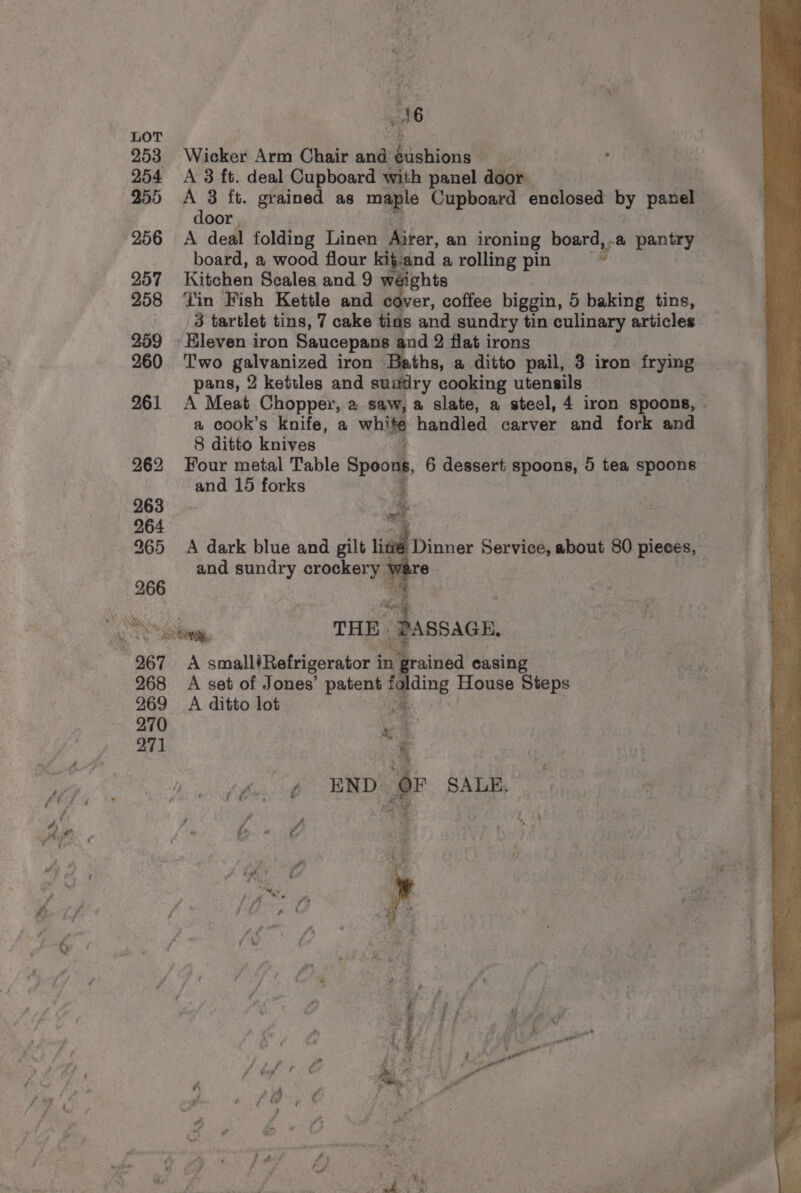 16
LOT
253 Wicker Arm Chair and cushions
254 A 3 ft. deal Cupboard with panel door
255 A 3 ft. grained as maple Cupboard enclosed by panel
door
256 A deal folding Linen Airer, an ironing board, a pantry
board, a wood flour kit and a rolling pin
257 Kitchen Scales and 9 weights
258 Tin Fish Kettle and cover, coffee biggin, 5 baking tins,
3 tartlet tins, 7 cake tins and sundry tin culinary articles
259 Eleven iron Saucepans and 2 flat irons
260 Two galvanized iron Baths, a ditto pail, 3 iron frying
pans, 2 kettles and sundry cooking utensils
261 A Meat Chopper, a saw, a slate, a steel, 4 iron spoons,
a cook's knife, a white handled carver and fork and
8 ditto knives
262 Four metal Table Spoons, 6 dessert spoons, 5 tea spoons
and 15 forks
263
264
265 A dark blue and gilt line Dinner Service, about 80 pieces,
and sundry crockery ware
266
THE PASSAGE.
267 A small Refrigerator in grained casing
268 A set of Jones' patent folding House Steps
269 A ditto lot
270
271
END OF SALE.